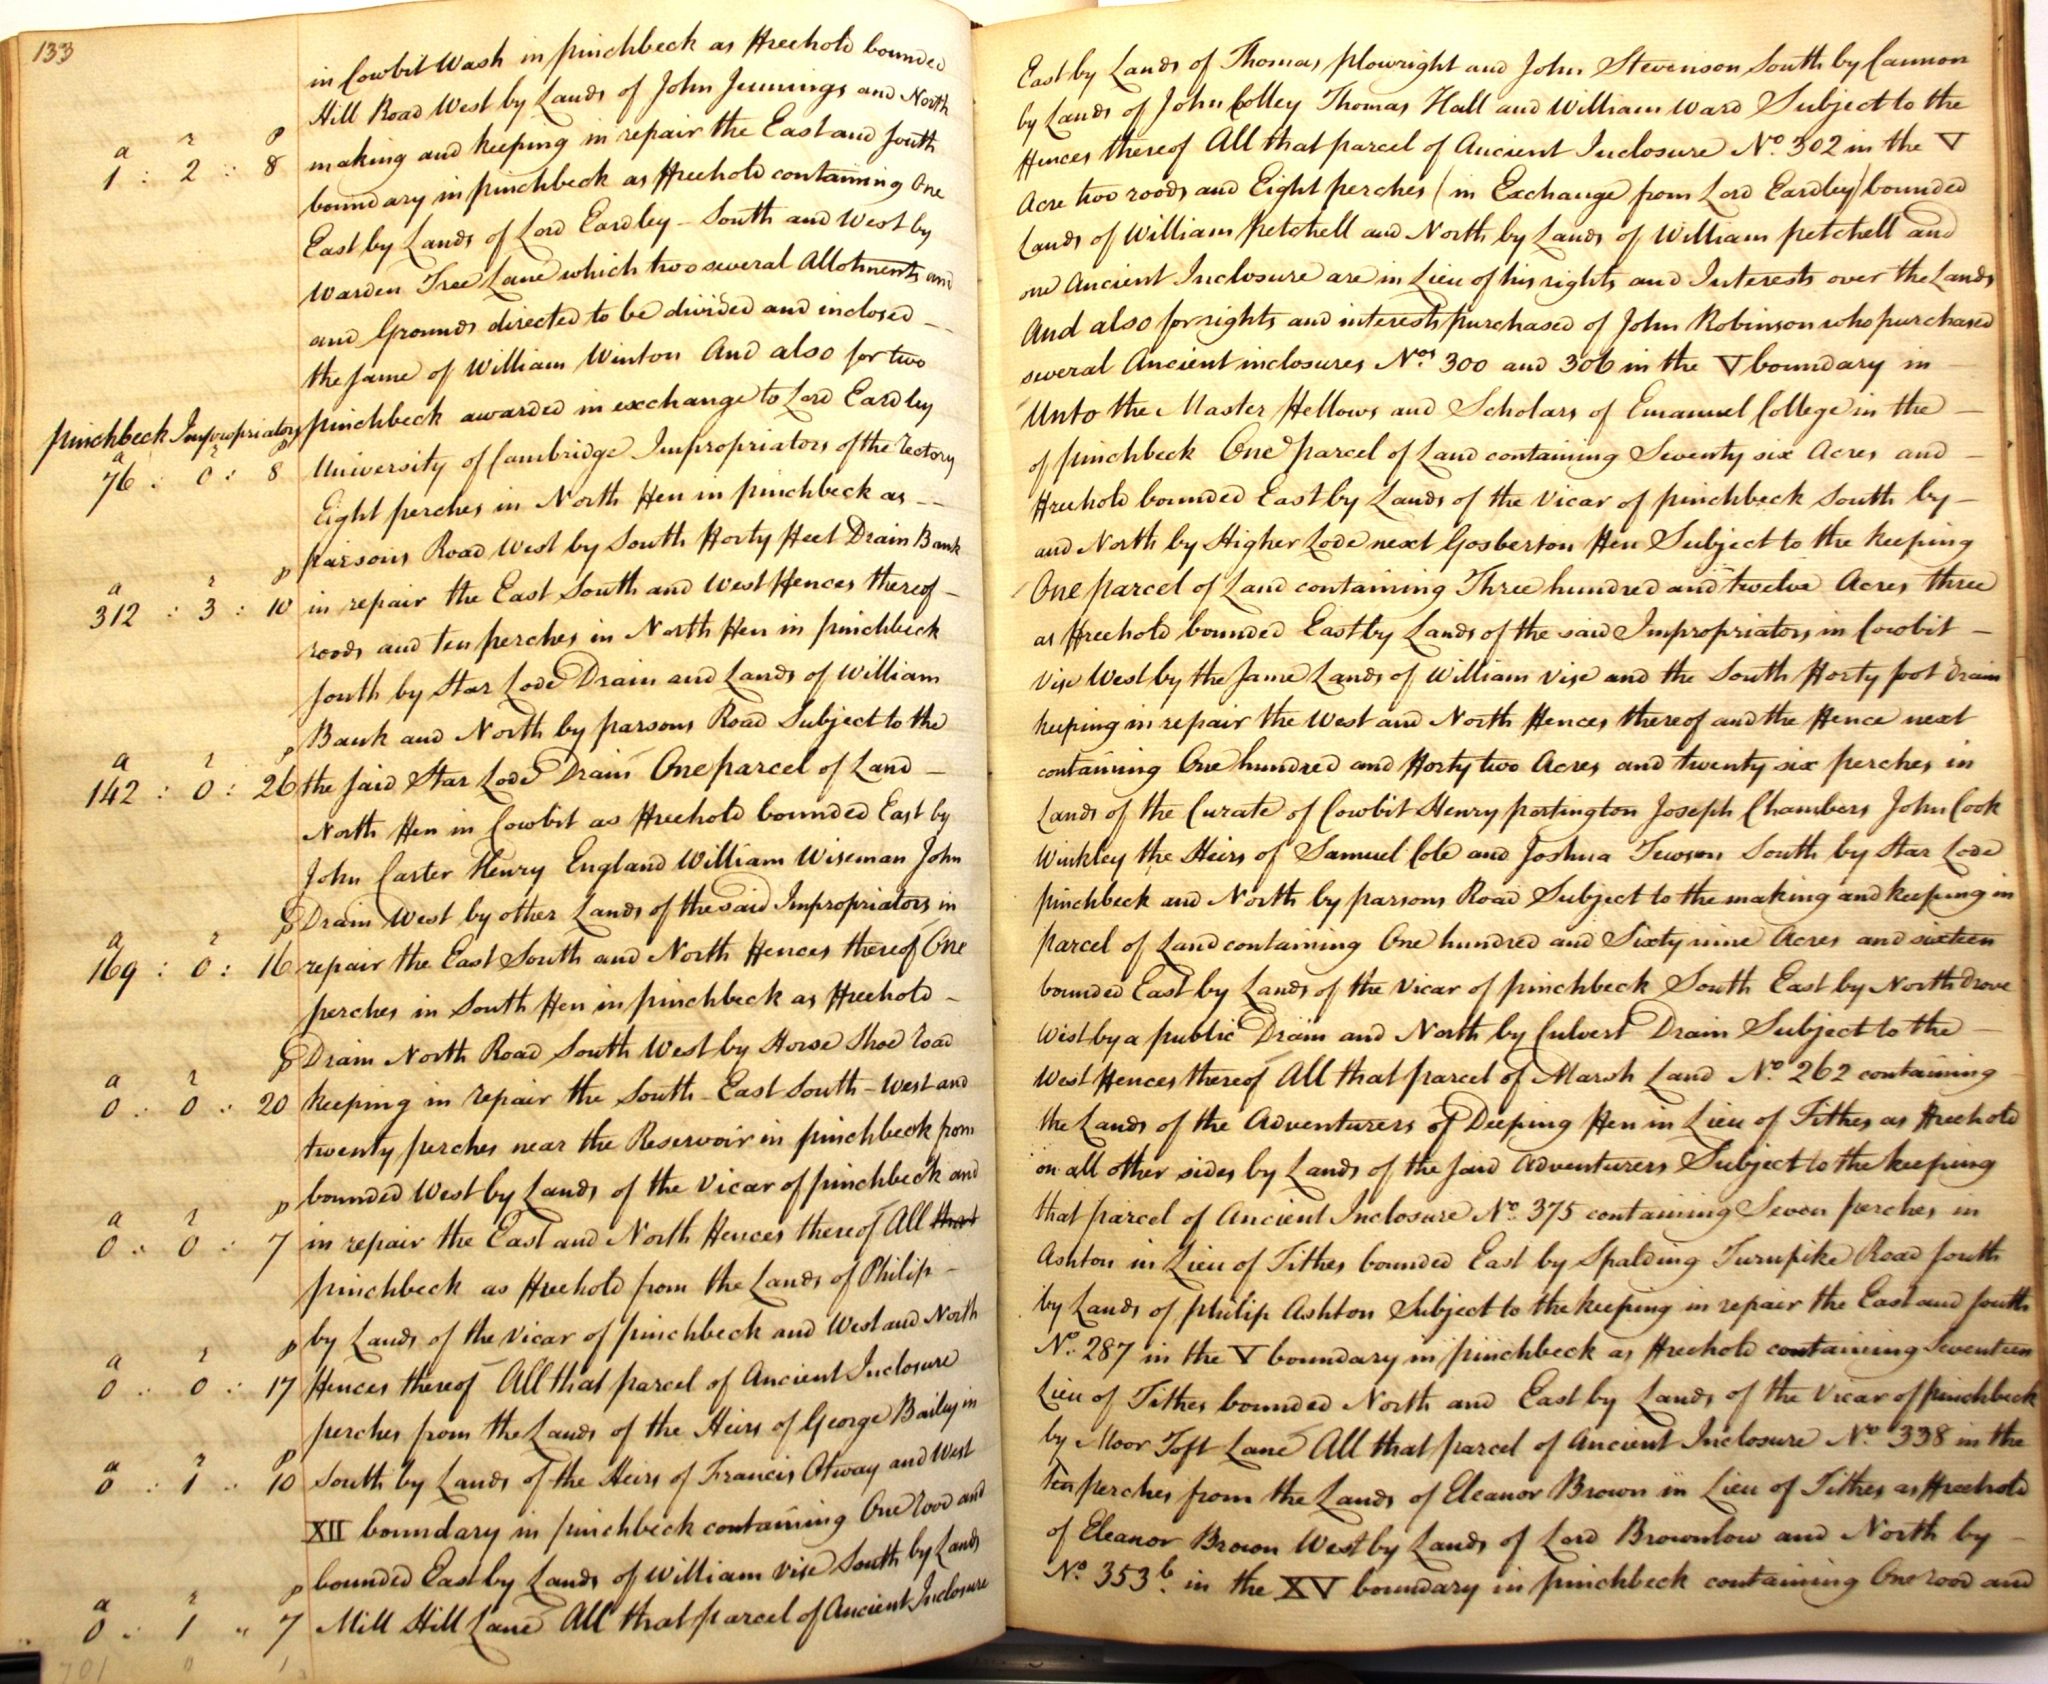 133
in Cowbit Wash in pinchbeck as Freehold bounded East by Lands of Thomas plowright and John Stevenson South by Cannon
Hill Road West by Lands of John Jennings and North by Lands of John Colley Thomas Hall and William Ward Subject to the
a r p
1 : 2 : 8 making and keeping in repair the East and South Fences thereof All that parcel of Ancient Inclosure No. 302 in the V
boundary in pinchbeck as Freehold containing One Acre two roods and Eight perches (in Exchange from Lord Eardley) bounded
East by Lands of Lord Eardley - South and West by Lands of William petchell and North by Lands of William petchell and
Warden Tree Lane which two several Allotments and one Ancient Inclosure are in Lieu of his rights and Interests over the Lands
and Grounds directed to be divided and inclosed - - And also for rights and interests purchased of John Robinson who purchased
the same of William Winton And also for two several Ancient inclosures Nos. 300 and 306 in the V boundary in -
pinchbeck Impropriators pinchbeck awarded in exchange to Lord Eardley Unto the Master Fellows and Scholars of Emanuel College in the -
a r p
76 : 0 : 8 University of Cambridge Impropriators of the rectory of pinchbeck One parcel of Land containing Seventy six Acres and -
Eight perches in North Fen in pinchbeck as - - Freehold bounded East by Lands of the Vicar of pinchbeck South by -
parsons Road West by South Forty Feet Drain Bank and North by Higher Lode next Gosberton Fen Subject to the keeping
a r p
312 : 3 : 10 in repair the East South and West Fences thereof - One parcel of Land containing Three hundred and twelve Acres three
roods and ten perches in North Fen in pinchbeck as Freehold bounded East by Lands of the said Impropriators in Cowbit -
South by Star Lode Drain and Lands of William Vise West by the same Lands of William Vise and the South Forty foot drain
Bank and North by parsons Road Subject to the keeping in repair the West and North Fences thereof and the Fence next
a r p
142 : 0 : 26 the said Star Lode Drain One parcel of Land - containing One hundred and Forty two Acres and twenty six perches in
North Fen in Cowbit as Freehold bounded East by Lands of the Curate of Cowbit Henry partington Joseph Chambers John Cook
John Carter Henry England William Wiseman John Winkley the Heirs of Samuel Cole and Joshua Tewson South by Star Lode
Drain West by other Lands of the said Impropriators in pinchbeck and North by parsons Road Subject to the making and keeping in
a r p
169 : 0 : 16 repair the East South and North Fences thereof One parcel of Land containing One hundred and Sixty nine Acres and sixteen
perches in South Fen in pinchbeck as Freehold - bounded East by Lands of the Vicar of pinchbeck South East by North drove
Drain North Road South West by Horse Shoe road West by a public Drain and North by Culvert Drain Subject to the -
a r p
0 : 0 : 20 keeping in repair the South - East South - West and West Fences thereof All that parcel of Marsh Land No. 262 containing
twenty perches near the Reservoir in pinchbeck from the Lands of the Adventurers of Deeping Fen in Lieu of Tithes as Freehold
bounded West by Lands of the Vicar of pinchbeck and on all other sides by Lands of the said Adventurers Subject to the keeping
a r p
0 : 0 : 7 in repair the East and North Fences thereof All that that parcel of Ancient Inclosure No. 375 containing Seven perches in
pinchbeck as Freehold from the Lands of Philip - Ashton in Lieu of Tithes bounded East by Spalding Turnpike Road South
by Lands of the Vicar of pinchbeck and West and North by Lands of philip Ashton Subject to the keeping in repair the East and South
a r p
0 : 0 : 17 Fences thereof All that parcel of Ancient Inclosure No. 287 in the V boundary in pinchbeck as Freehold containing Seventeen
perches from the Lands of the Heirs of George Bailey in Lieu of Tithes bounded North and East by Lands of the Vicar of pinchbeck
a r p
0 : 1 : 10 South by Lands of the Heirs of Francis Otway and West by Moor Toft Lane All that parcel of Ancient Inclosure No. 338 in the
XII boundary in pinchbeck containing One rood and ten perches from the Lands of Eleanor Brown in Lieu of Tithes as Freehold
bounded East by Lands of William Vise South by Lands of Eleanor Brown West by Lands of Lord Brownlow and North by -
a r p
0 : 1 : 7 Mill Hill Lane All that parcel of Ancient Inclosure No. 353b. in the XV boundary in pinchbeck containing One rood and